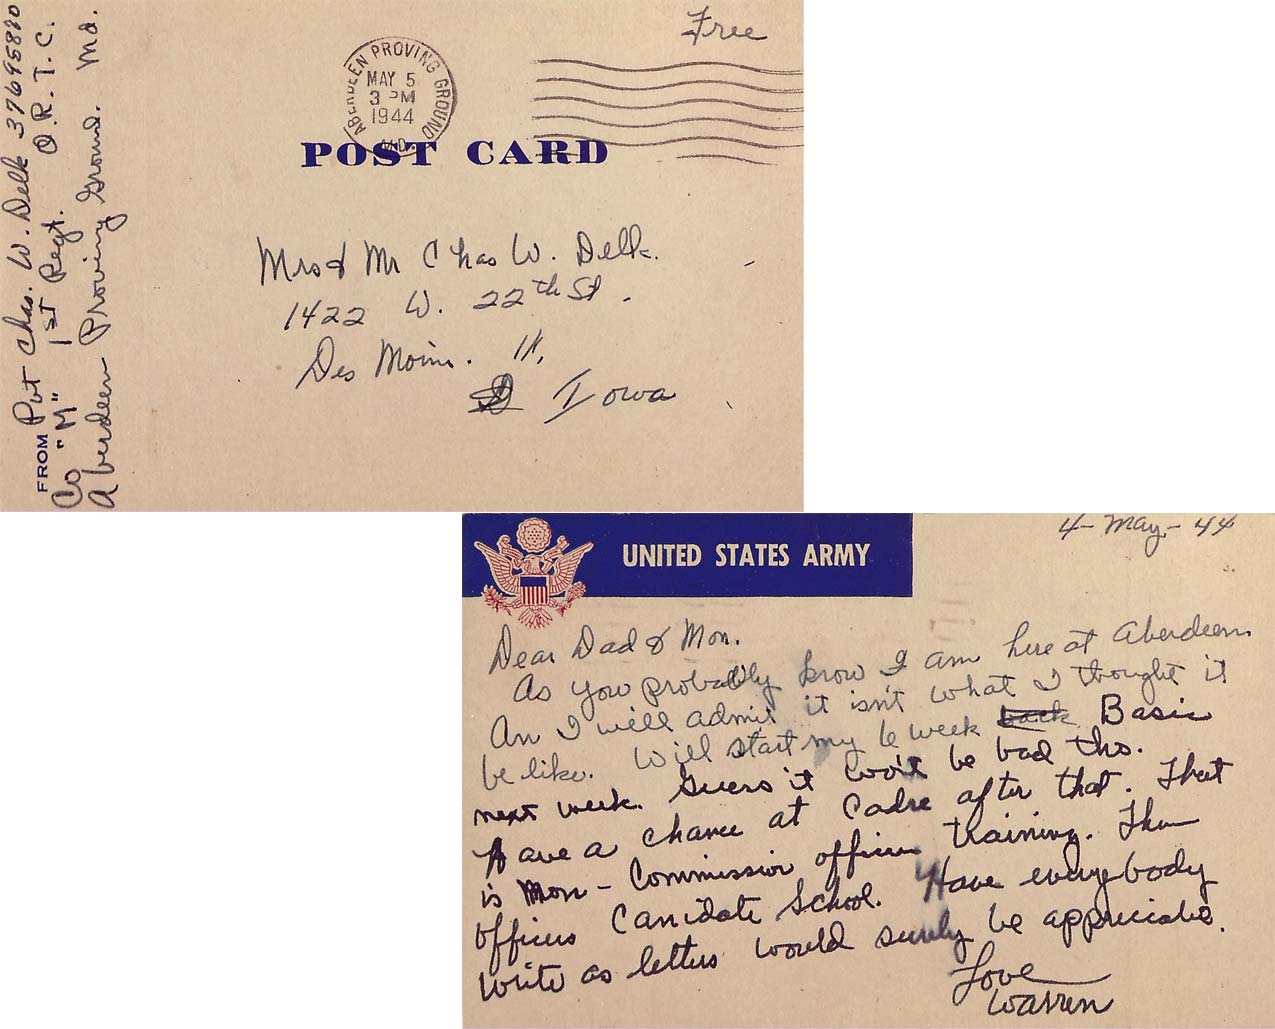 Free
ABERDEEN PROVING GROUND
MAY 5
3 PM
1944
M.D.
POST CARD
FROM Pvt Chas. W. Delk 37695820
Co "M" 1st Regt. O.R.T.C.
Aberdeen Proving Ground. Md.
Mrs & Mr Chas W. Delk.
1422 W. 22th St.
Des Moins. 11,
Iowa
UNITED STATES ARMY
4-May-44
Dear Dad & Mon.
As you probably know I am here at Aberdeen
An I will admit it isn't what I thought it
be like. Will start my 6 week back Basic
next week. Guess it won't be bad tho.
Have a chance at Cadre after that. That
is Non-Commission officers training. Then
officers Canidate School. Have everybody
write as letters would surely be appreciate.
Love
Warren